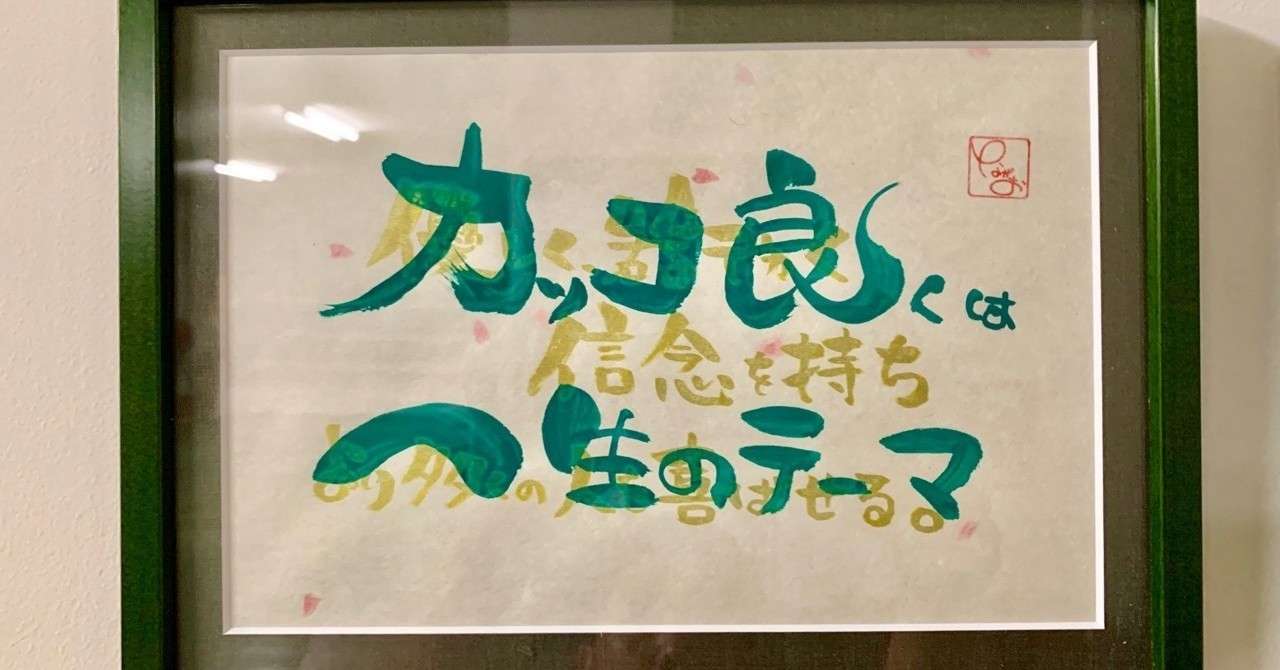 カッコ良くは
信念を持ち
一生のテーマ
より多くの人を喜ばせる。